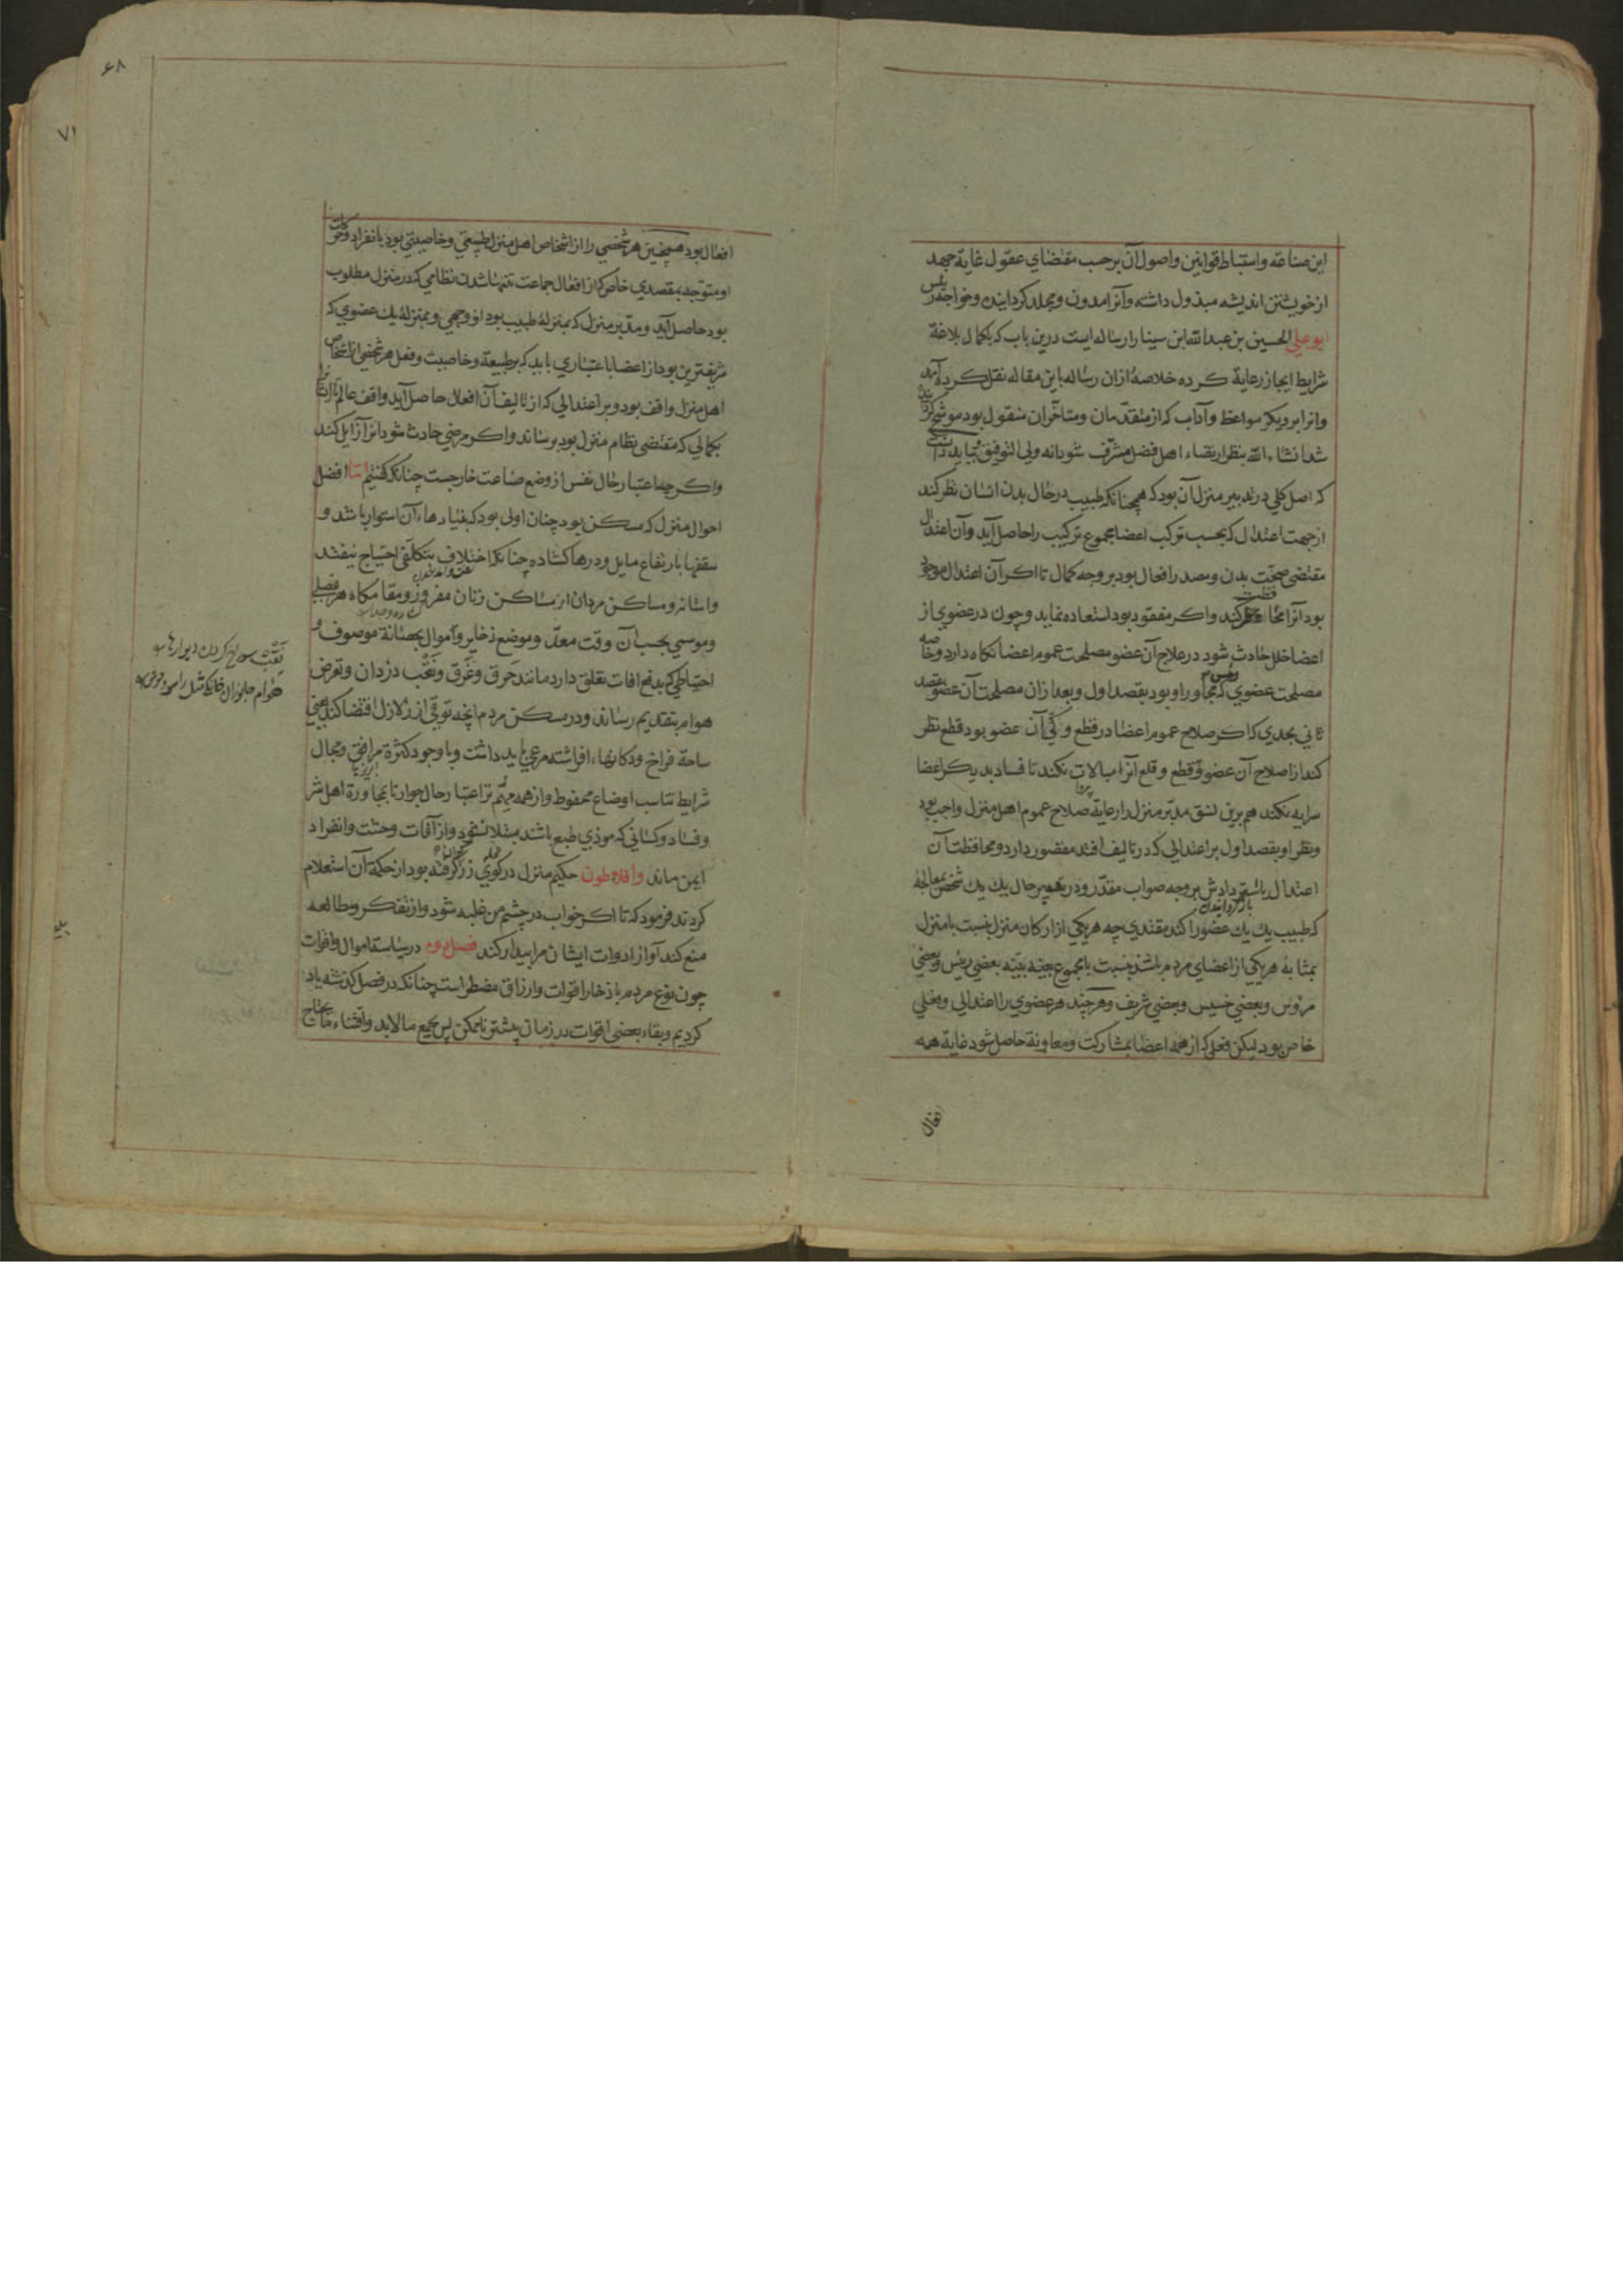 این صناعة واستنباط قوانین واصول آن برحسب مقتضای عقول غایة جهد
از خویشتن اندیشه مبذول داشته وآنرا مدون ومجلد کردانیده وخواجه رئیس
بوعلی الحسین بن عبدالله ابن سینا را رساله ایست درین باب که باکمال بلاغة
شرایط ایجاز رعایة کرده خلاصهٔ ازان رساله باین مقاله نقل کرده آمد
وانرا بر دیکر مواعظ وآداب که از متقدّمان ومتاخّران منقول بود موشح کردانیده
شد انشاء الله بنظر ارتضاء اهل فضل مشرّف شود انه ولی التوفیق بباید دانست
که اصل کلی در تدبیر منزل آن بود که همچنانکه طبیب در حال بدن انسان نظر کند
از جهت اعتدال که بحسب ترکب اعضا مجموع ترکیب را حاصل آید وآن اعتدال
مقتضی صحّت بدن ومصدر افعال بود بر وجه کمال تا اکر آن اعتدال موجود
بود انرا محافظت کند واکر مفقود بود استعاده نماید وچون در عضوی از
اعضا خلل حادث شود در علاج آن عضو مصلحت عموم اعضا نکاه دارد وخاصه
مصلحت عضوی رئیس که مجاور او بود بقصد اول وبعد ازان مصلحت آن عضو بقصد
ثانی بحدی که اکر صلاح عموم اعضا در قطع وکی آن عضو بود قطع نظر
کند از اصلاح آن عضو وقطع وقلع آنرا مبالات نکند تا فساد بدیکر اعضا
پروا
سرایه نکند هم برین نسق مدبّر منزل را رعایة صلاح عموم اهل منزل واجب بود
ونظر او بقصد اول بر اعتدالی که در تالیف افتد مقصور دارد ومحافظت آن
اعتدال یا استرداد ش بر وجه صواب مقدّر ودر تدبیر حال یك یك شخص بمعالجهٔ
بازکردانیدن
که طبیب یك یك عضو را کند مقتدی چه هریکی از ارکان منزل بنسبت با منزل
بمثابه هریکی از اعضای مردم باشد بنسبت با مجموع بعضی رئیس وبعضی
مرؤس وبعضی خسیس وبعضی شریف وهرچند هر عضوی را اعتدالی وفعلی
خاص بود لیکن فعلی که از همه اعضا بمشارکت ومعاونة حاصل شود غایة همه
افعال
۶۸
۷۱
افعال بود همچنین هر شخصی را از اشخاص اهل منزل طبیعتی وخاصیتی بود بانفراد وحرکات
او متوجه بمقصدی خاص که از افعال جماعت نظامی که در منزل مطلوب
بود حاصل آید ومدبّر منزل که بمنزلهٔ طبیب بود از وجهی وبمنزلهٔ یك عضوی که
شریفترین بود از اعضا باعتباری باید که بر طبیعة وخاصیت وفعل هر شخصی از اشخاص
اهل منزل واقف بود وبر اعتدالی که از تالیف آن افعال حاصل آید واقف
بکمالی که مقتضی نظام منزل بود برساند واکر مرضی حادث شود انرا زایل کند
واکرچه اعتبار حال نفس از وضع صناعت خارجست چنانکه کفتیم اما افضل
احوال منزل که مسکن بود چنان اولی بود که بنیادهاء آن استوار باشد و
سقفها بارتفاع مایل ودرها کشاده چنانکه اختلاف بتکلّفی احتیاج نیفتد
ومساکن مردان از مساکن زنان مفروز ومقامکاه هر فصلی
وموسمی بحسب آن وقت معدّ وموضع ذخایر واموال بحصانة موصوف و
احتیاطی که بدفع افات تعلق دارد مانند حَرق وغَرق ونَقْب دزدان وتعرض
هوام بتقدیم رساند ودر مسکن مردم انچه توقّی از زلازل اقتضا کند یعنی
ساحة فراخ ودکانهاء افراشته مرعی باید داشت وبا وجود کثرة مرافق ومجال
شرایط تناسب اوضاع محفوظ واز همه مهم تر اعتبار حال جوار تا بمجاورة اهل شر
وفساد وکسانی که موذی طبع باشند مبتلا نشود واز آفات وحشت وانفراد
ایمن ماند وافلاطون حکیم منزل در کوی زرکران کرفته بود از حکمة آن استعلام
کردند فرمود که تا اکر خواب در چشم من غلبه شود واز تفکر ومطالعه
منع کند آواز ادوات ایشان مرا بیدار کند فصل دوم در سیاسة اموال واقوات
چون نوع مردم باذخار اقوات وارزاق مضطر است چنانکه در فصل کذشته یاد
کردیم وبقاء بعضی اقوات در زمان بیشتر ناممکن پس بجمع مالابد واقتناء مایحتاج
نَقْب سوراخ کردن دیوارها
هوام جانوران خانکی مثل